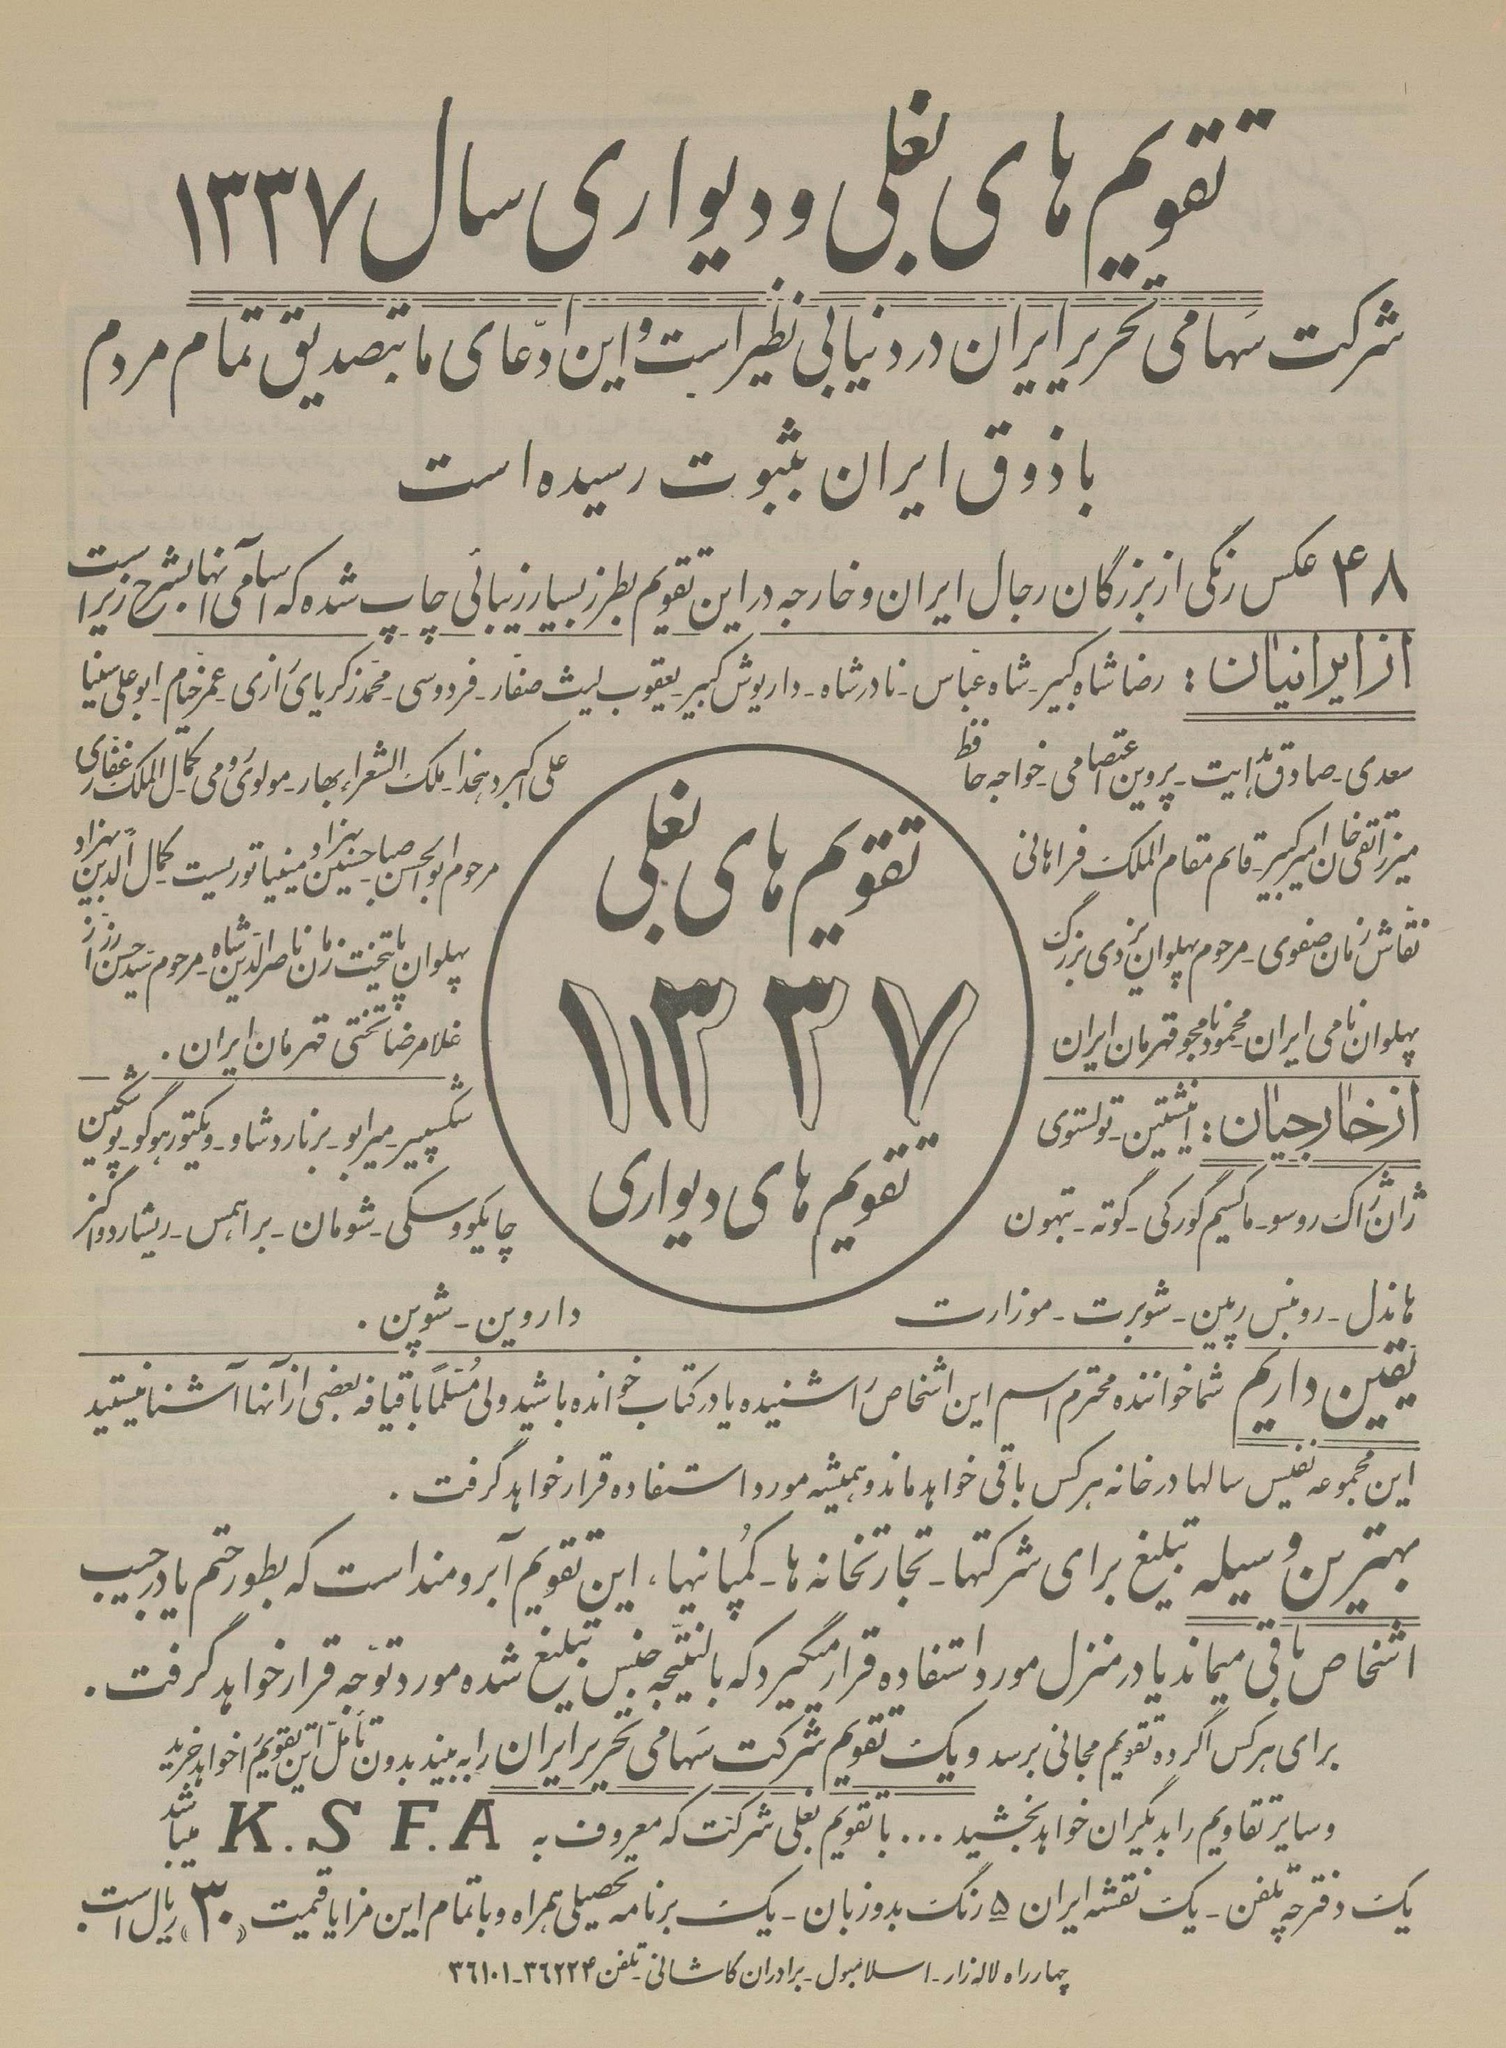 تقویم های بغلی و دیواری سال ۱۳۳۷
شرکت سهامی تحریر ایران در دنیا بی نظیر است و این ادّعای ما بتصدیق تمام مردم
با ذوق ایران بثبوت رسیده است
۴۸ عکس رنگی از بزرگان رجال ایران و خارجه در این تقویم بطرز بسیار زیبائی چاپ شده که اسامی آنها بشرح زیر است
از ایرانیان: رضا شاه کبیر ـ شاه عباس ـ نادر شاه ـ داریوش کبیر ـ یعقوب لیث صفار ـ فردوسی ـ محمد زکریای رازی ـ عمر خیام ـ ابو علی سینا
سعدی ـ صادق هدایت ـ پروین اعتصامی ـ خواجه حافظ
علی اکبر دهخدا ـ ملک الشعراء بهار ـ مولوی رومی ـ کمال الملک غفاری
میرزا تقی خان امیر کبیر ـ قائم مقام الملک فراهانی
مرحوم ابوالحسن صبا ـ حسین بهزاد مینیاتوریست ـ کمال الدین بهزاد
نقاش زمان صفوی ـ مرحوم پهلوان یزدی بزرگ
پهلوان پایتخت زمان ناصرالدین شاه ـ مرحوم سید حسن رزاز
پهلوان نامی ایران ـ محمود نامجو قهرمان ایران
غلامرضا تختی قهرمان ایران .
تقویم های بغلی
۱۳۳۷
تقویم های دیواری
از خارجیان: انیشتین ـ تولستوی
شکسپیر ـ میرابو ـ برنارد شاو ـ ویکتور هوگو ـ پوشکین
ژان ژاک روسو ـ ماکسیم گورکی ـ گوته ـ بتهون
چایکووسکی ـ شومان ـ براهمس ـ ریشارد واگنر
هاندل ـ روبنس پیین ـ شوبرت ـ موزارت
داروین ـ شوپن .
یقین داریم شما خواننده محترم اسم این اشخاص را شنیده یا در کتاب خوانده باشید ولی مسلماً با قیافه بعضی از آنها آشنا نیستید
این مجموعه نفیس سالها در خانه هر کس باقی خواهد ماند و همیشه مورد استفاده قرار خواهد گرفت .
بهترین وسیله تبلیغ برای شرکتها ـ تجارتخانه ها ـ کمپانیها، این تقویم آبرومند است که بطور حتم یا در جیب
اشخاص باقی میماند یا در منزل مورد استفاده قرار میگیرد که بالنتیجه جنس تبلیغ شده مورد توجّه قرار خواهد گرفت .
برای هر کس اگر ده تقویم مجانی برسد و یک تقویم شرکت سهامی تحریر ایران را به بیند بدون تأمل این تقویم را خواهد خرید
و سایر تقاویم را بدیگران خواهد بخشید ... با تقویم بغلی شرکت که معروف به K.S F.A میباشد
یک دفترچه تلفن ـ یک نقشه ایران ۵ رنگ بدو زبان ـ یک برنامه تحصیلی همراه و با تمام این مزایا قیمت «۳۰» ریال است
چهارراه لاله زار ـ اسلامبول ـ برادران کاشانی ـ تلفن ۳۶۲۲۴ ـ ۳۶۱۰۱